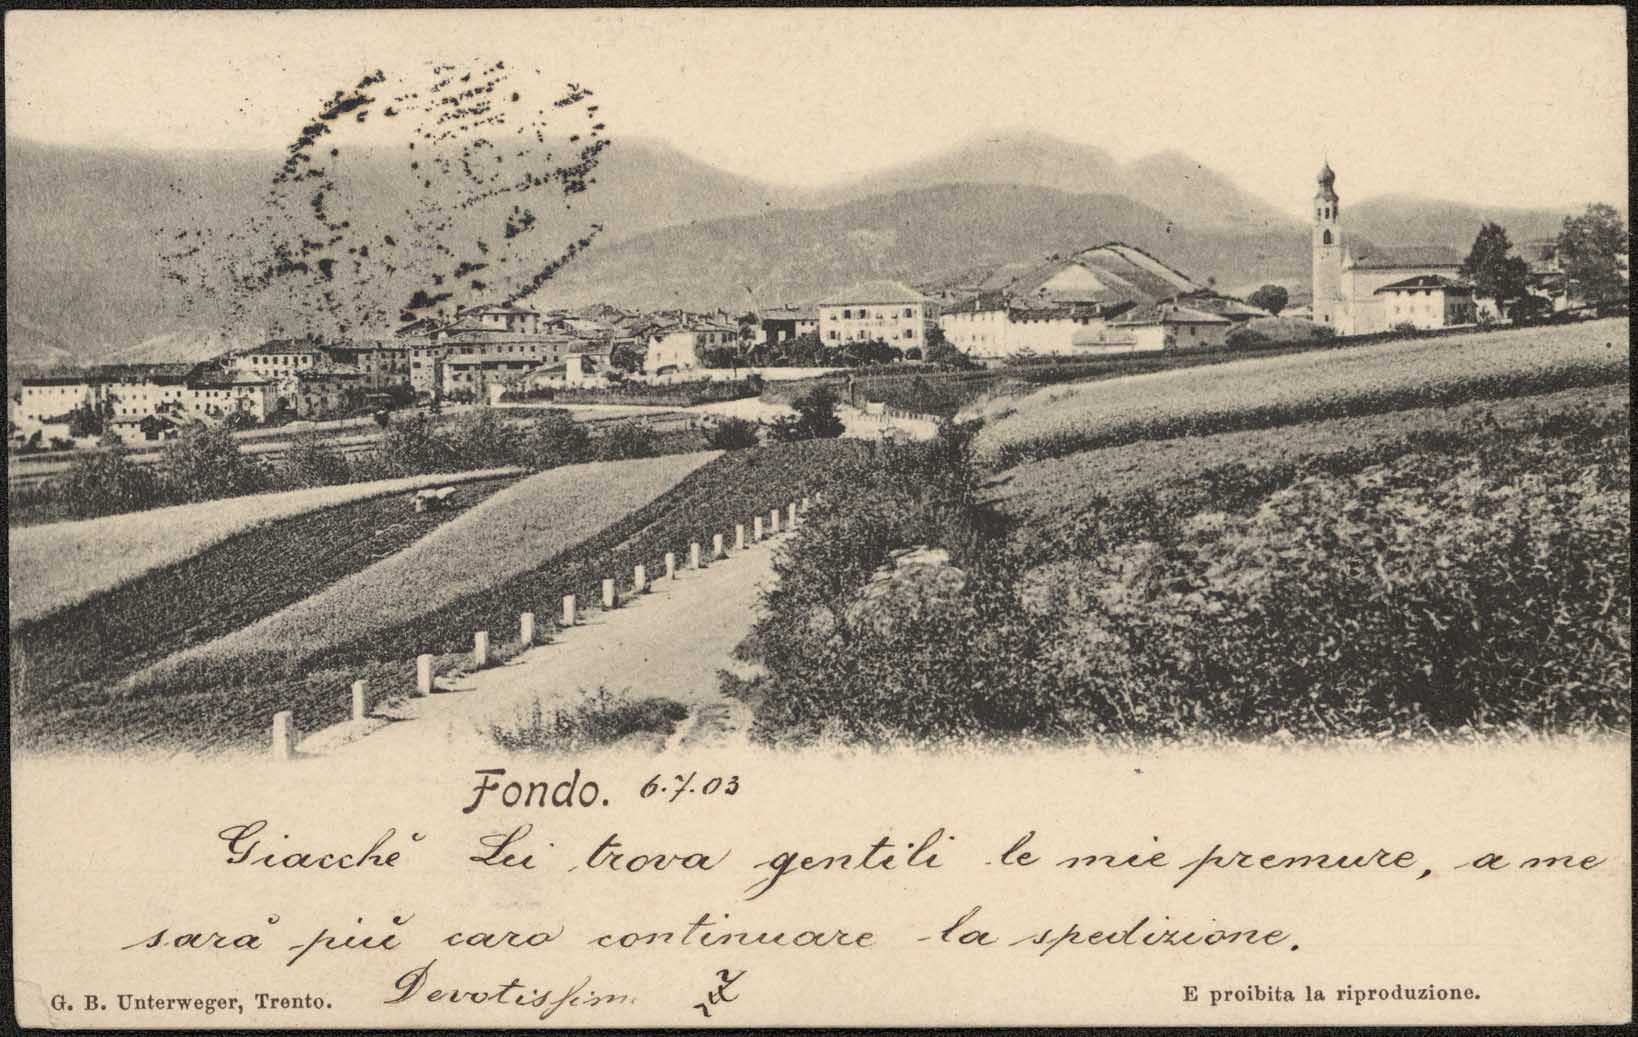 Fondo. 6.7.03
Giacchè Lei trova gentili le mie premure, a me
sarà più caro continuare la spedizione.
Devotissim
G. B. Unterweger, Trento.
E proibita la riproduzione.